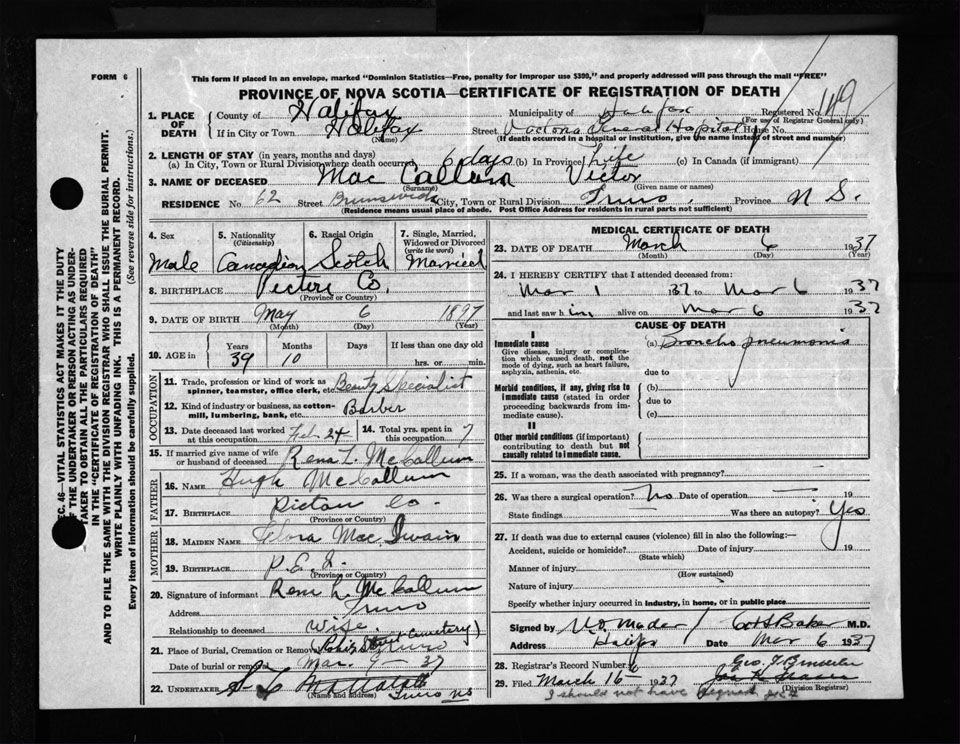 FORM 6
This form if placed in an envelope, marked "Dominion Statistics—Free, penalty for improper use $300," and properly addressed will pass through the mail "FREE"
PROVINCE OF NOVA SCOTIA—CERTIFICATE OF REGISTRATION OF DEATH
SEC. 46—VITAL STATISTICS ACT MAKES IT THE DUTY
OF THE UNDERTAKER OR PERSON ACTING AS UNDER-
TAKER TO OBTAIN ALL THE PARTICULARS REQUIRED
IN THE "CERTIFICATE OF REGISTRATION OF DEATH"
AND TO FILE THE SAME WITH THE DIVISION REGISTRAR WHO SHALL ISSUE THE BURIAL PERMIT.
WRITE PLAINLY WITH UNFADING INK. THIS IS A PERMANENT RECORD.
Every item of information should be carefully supplied. (See reverse side for instructions.)
1. PLACE OF DEATH
County of Halifax Municipality of Halifax Registered No. 149
(For use of Registrar General only)
If in City or Town Halifax Street Victoria General Hospital House No.
(Name) (If death occurred in a hospital or institution, give the name instead of street and number)
2. LENGTH OF STAY (in years, months and days)
(a) In City, Town or Rural Division where death occurred 6 days (b) In Province Life (c) In Canada (if immigrant)
3. NAME OF DECEASED Mac Callum Victor
(Surname) (Given name or names)
RESIDENCE No 62 Street Brunswick City, Town or Rural Division Truro, Province N S.
(Residence means usual place of abode. Post Office Address for residents in rural parts not sufficient)
4. Sex Male
5. Nationality (Citizenship) Canadian
6. Racial Origin Scotch
7. Single, Married, Widowed or Divorced (write the word) Married
8. BIRTHPLACE Pictou Co.
(Province or Country)
9. DATE OF BIRTH May 6 1897
(Month) (Day) (Year)
10. AGE in Years 39 Months 10 Days If less than one day old hrs. or min.
OCCUPATION
11. Trade, profession or kind of work as spinner, teamster, office clerk, etc. Beauty Specialist
12. Kind of industry or business, as cotton-mill, lumbering, bank, etc. Barber
13. Date deceased last worked at this occupation Feb 24
14. Total yrs. spent in this occupation 7
15. If married give name of wife or husband of deceased Rena L. McCallum
FATHER
16. NAME Hugh McCallum
17. BIRTHPLACE Pictou Co.
(Province or Country)
MOTHER
18. MAIDEN NAME Flora Mac Swain
19. BIRTHPLACE P.E.I.
(Province or Country)
20. Signature of informant Rena L. McCallum
Address Truro
Relationship to deceased Wife
21. Place of Burial, Cremation or Removal (Robie Street Cemetery) Truro
Date of burial or removal Mar. 9 - 37
22. UNDERTAKER
(Name and address) Truro NS
MEDICAL CERTIFICATE OF DEATH
23. DATE OF DEATH March 6 1937
(Month) (Day) (Year)
24. I HEREBY CERTIFY that I attended deceased from:
Mar 1 1937 to Mar 6 1937
and last saw him alive on Mar 6 1937
CAUSE OF DEATH
I
Immediate cause (a) Broncho pneumonia
Give disease, injury or complication which caused death, not the mode of dying, such as heart failure, asphyxia, asthenia, etc.
due to
Morbid conditions, if any, giving rise to immediate cause (stated in order proceeding backwards from immediate cause).
(b)
due to
(c)
II
Other morbid conditions (if important) contributing to death but not causally related to immediate cause.
25. If a woman, was the death associated with pregnancy?
26. Was there a surgical operation? No Date of operation — 19
State findings Was there an autopsy? Yes
27. If death was due to external causes (violence) fill in also the following:—
Accident, suicide or homicide? Date of injury 19
(State which)
Manner of injury
(How sustained)
Nature of injury
Specify whether injury occurred in industry, in home, or in public place
Signed by M.D.
Address Halifax Date Mar 6 1937
28. Registrar's Record Number
29. Filed March 16 1937
(Division Registrar)
I should not have signed